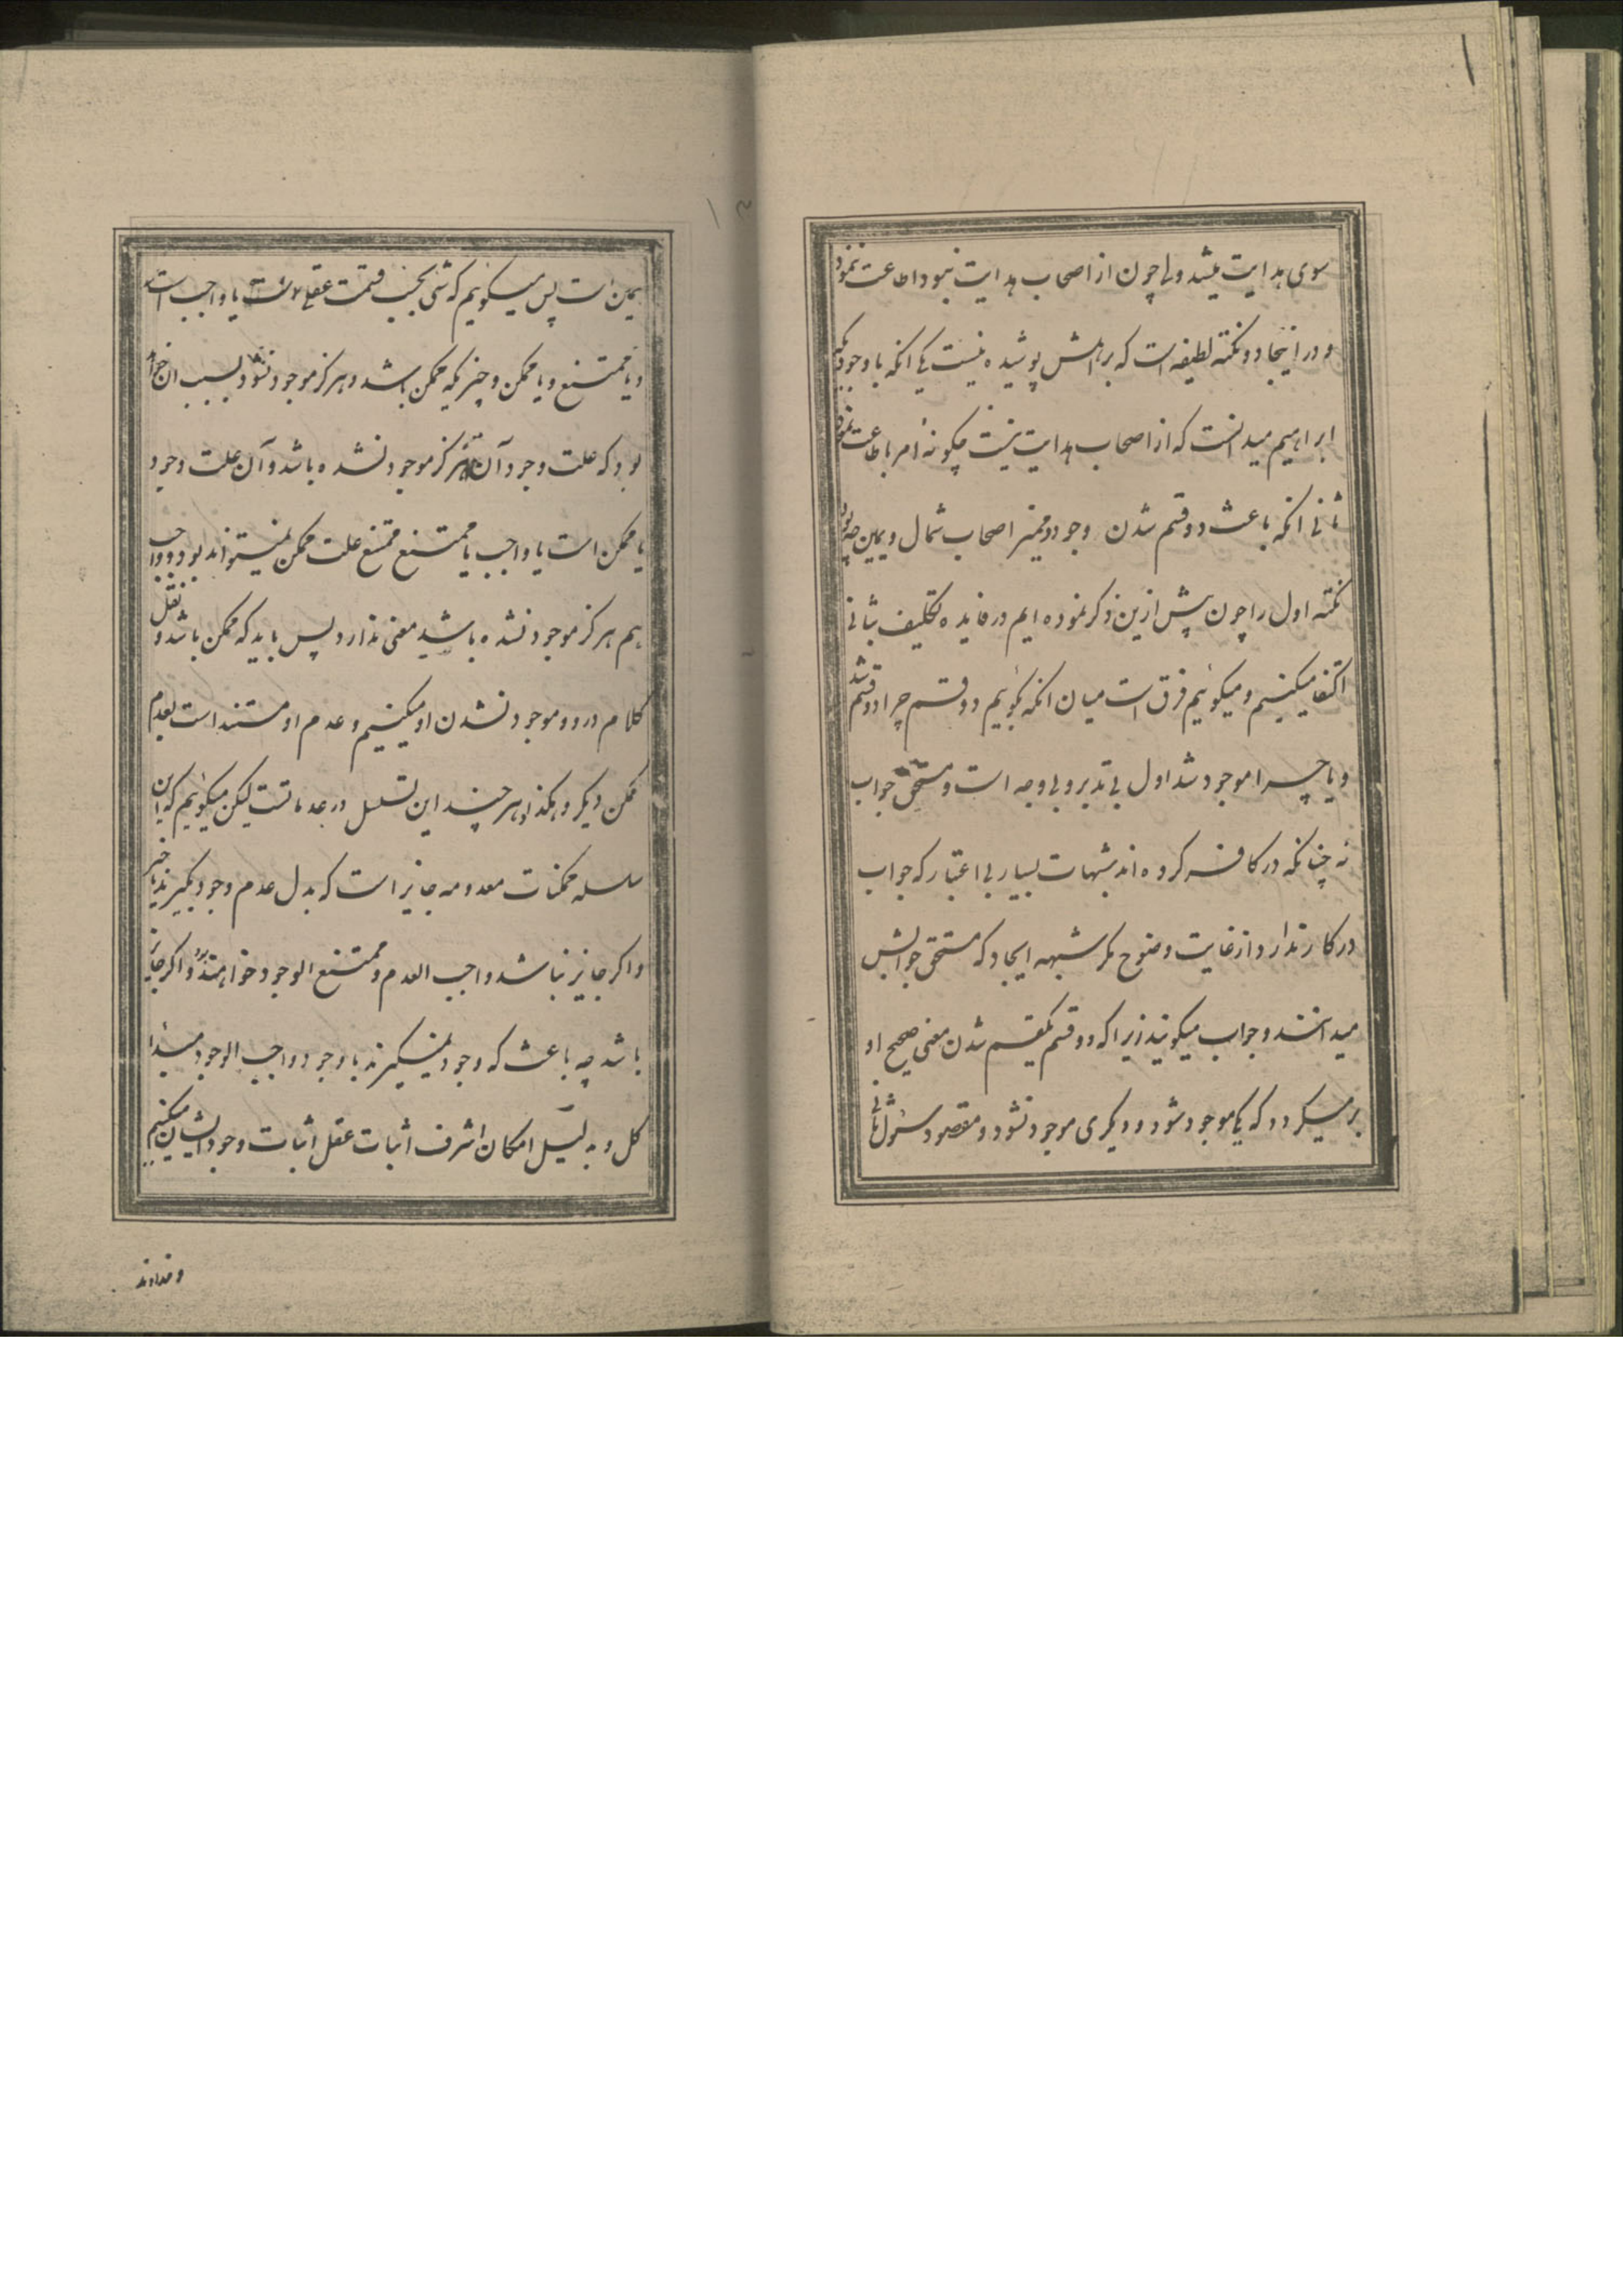 سوی هدایت میشد ولی چون از اصحاب هدایت نبود اطاعت ننمود
و در اینجا دو نکته لطیفه است که بر اهلش پوشیده نیست یکی انکه با وجودیکه
ابراهیم میدانست که از اصحاب هدایت نیست چگونه امر باطاعت نمود
ثانی انکه باعث دو قسم شدن وجود و ممیز اصحاب شمال و یمین چه بود
نکته اول را چون پیش ازین ذکر نموده ایم در فایده تکلیف بثانی
اکتفا میکنیم و میگوئیم فرق است میان انکه بگوئیم دو قسم چرا دو قسم شد
و یا چرا موجود شد اول بی تدبر و بی وجه است و مستحق جواب
نه چنانکه در کافر کرده اند شبهات بسیار بی اعتبار که جواب
در کار ندارد از غایت وضوح مگر شبهه ایجاد که مستحق جوابش
میدانند و جواب میگویند زیرا که دو قسم یکقسم شدن معنی صحیح او
بر میگردد که یکی موجود شود و دیگری موجود نشود و مقصود سئول ثانی
یمین است پس میگوئیم که شئ بحسب قسمت عقلی یا واجب است
و یا ممتنع و یا ممکن و چیزیکه ممکن باشد و هرگز موجود نشود بسبب ان
بود که علت وجود آن هرگز موجود نشده باشد و آن علت وجود
یا ممکن است یا واجب یا ممتنع ممتنع علت ممکن نمیتواند بود و واجب
هم هرگز موجود نشده باشد معنی ندارد پس باید که ممکن باشد و نقل
کلام در و موجود نشدن او میکنیم و عدم او مستند است بعدم
ممکن دیگر و هکذا و هر چند این تسلسل در عدماتست لیکن میگوئیم که این
سلسله ممکنات معدومه جایز است که بدل عدم وجود بگیرند یا خیر
و اگر جایز نباشد واجب العدم و ممتنع الوجود خواهند بود و اگر جایز
باشد چه باعث که وجود نمیگیرند با وجود واجب الوجود مبدا
کل و به دلیل امکان اشرف اثبات عقل اثبات وجود ایشان میکنیم
و خداوند